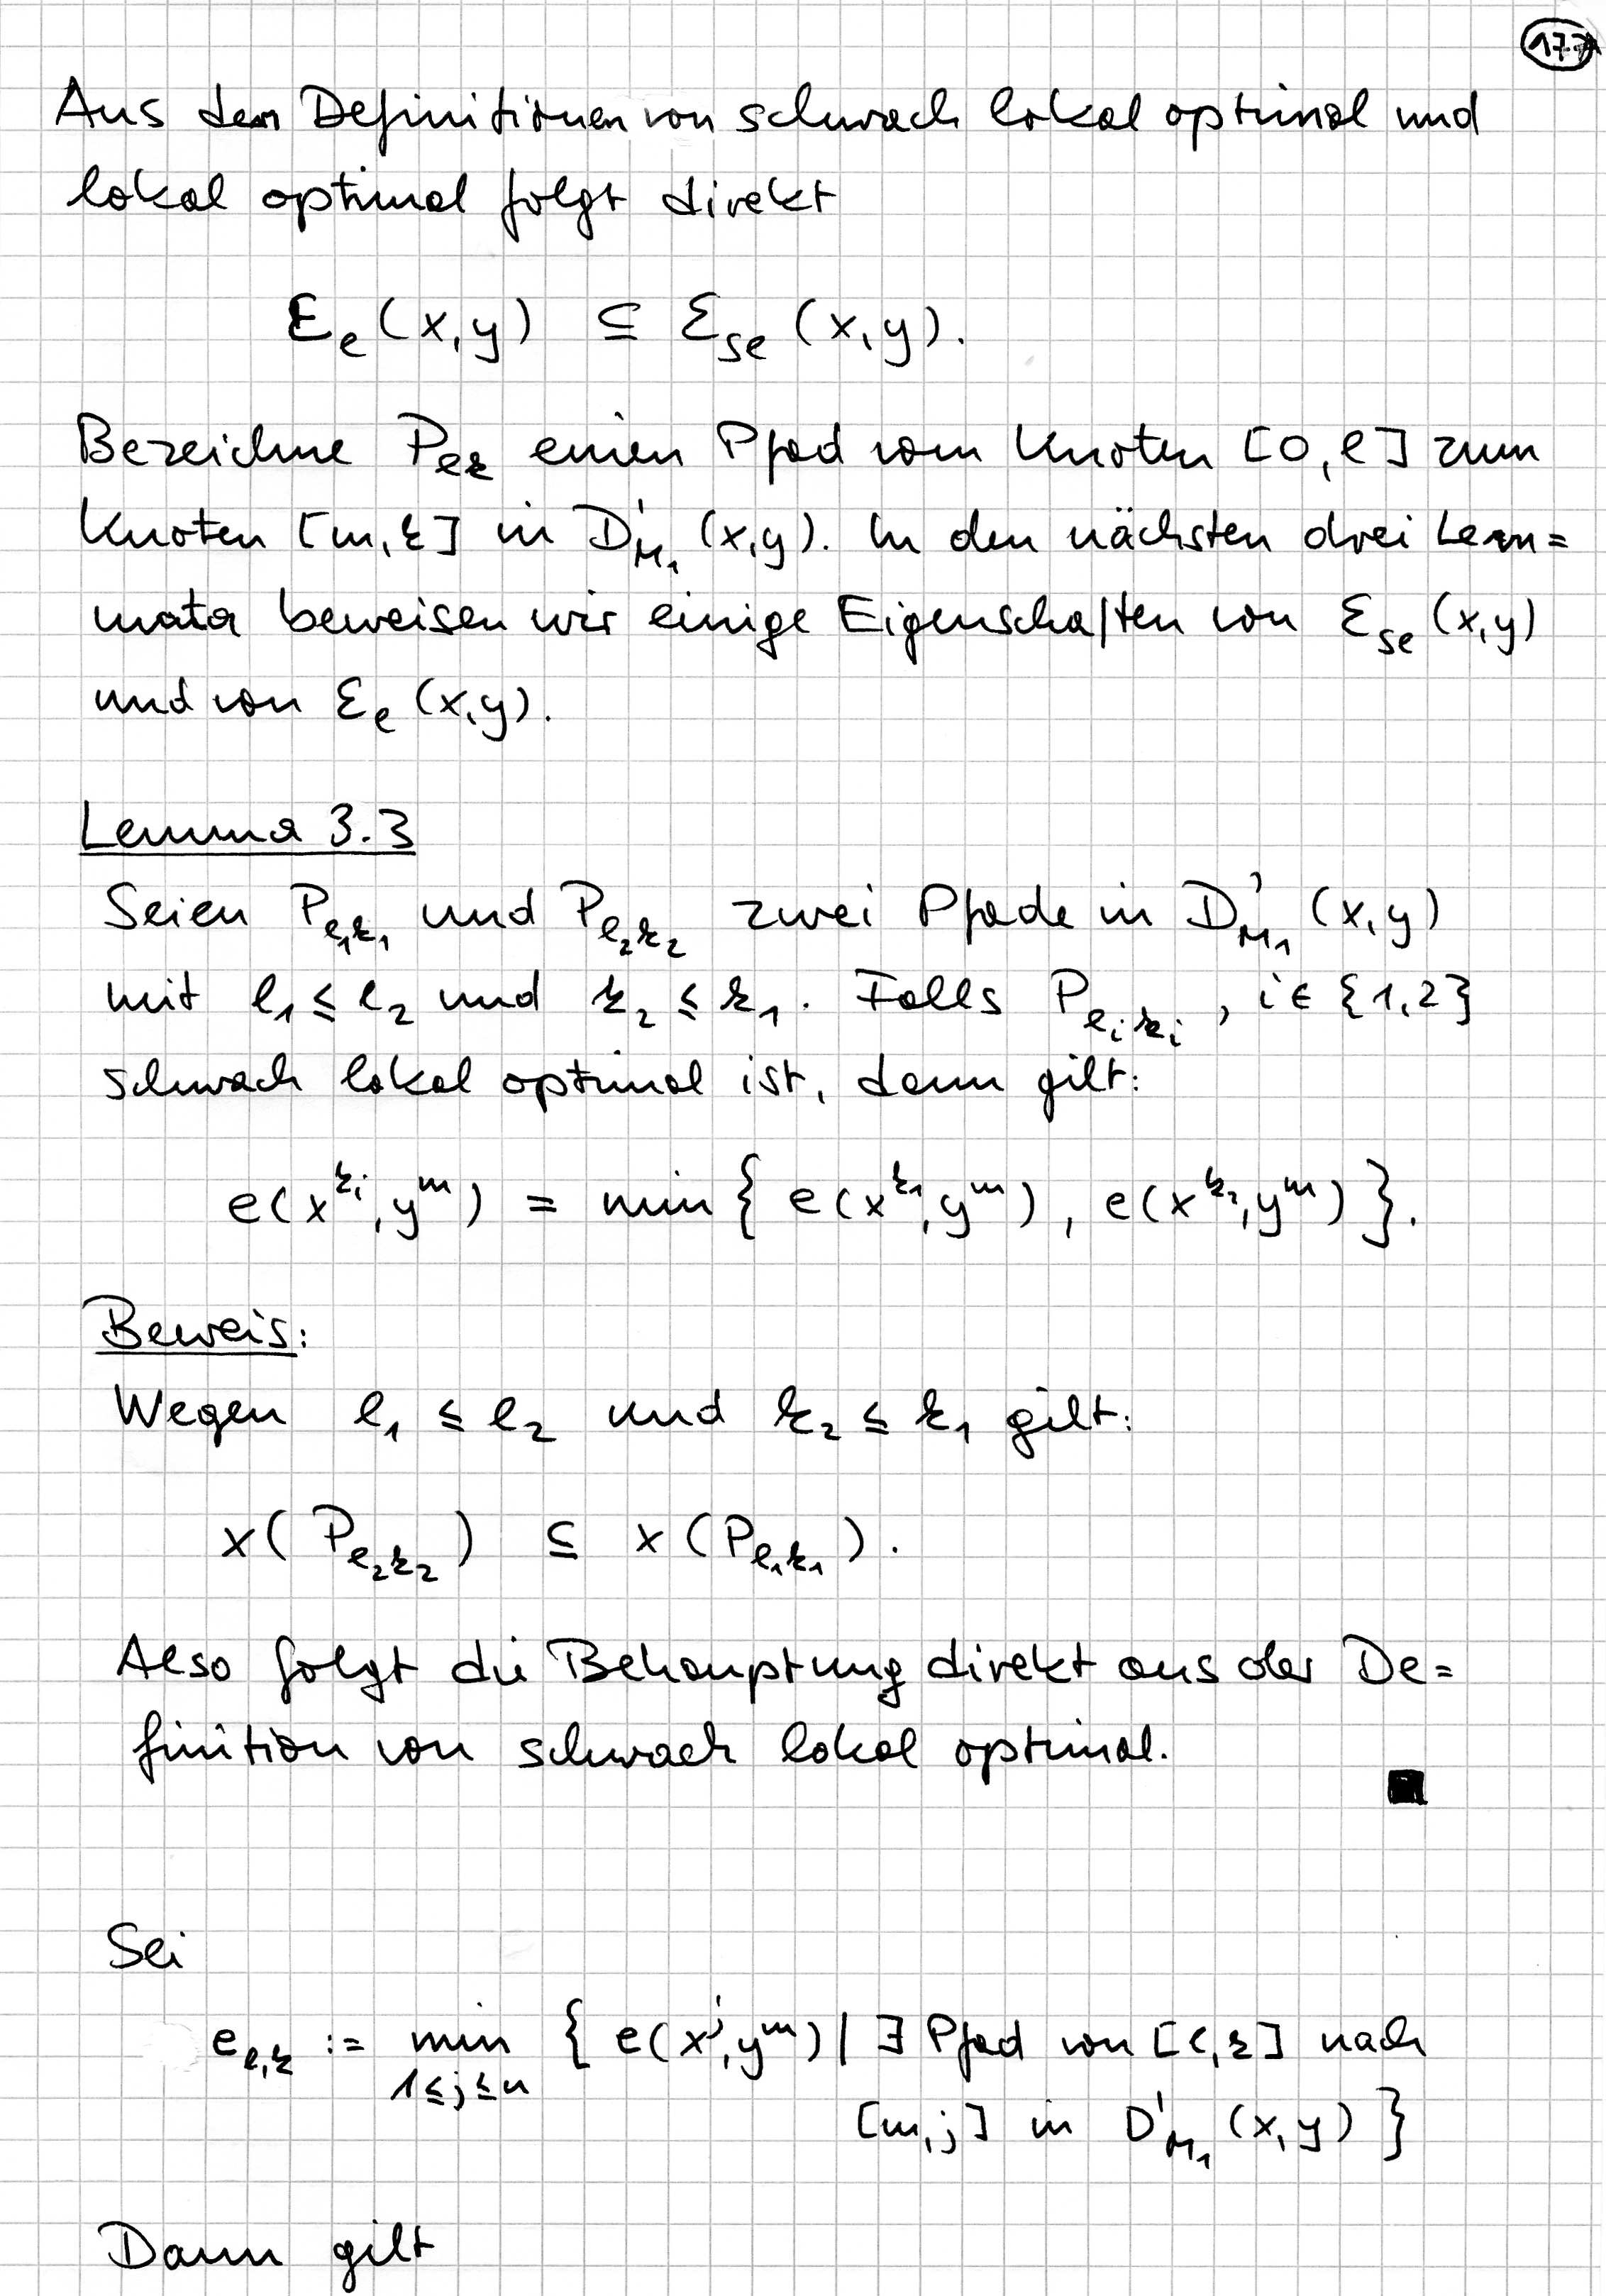 177
Aus den Definitionen von schwach lokal optimal und
lokal optimal folgt direkt
Ɛ_ℓ(x,y) ⊆ Ɛ_sℓ(x,y).
Bezeichne P_ℓk einen Pfad vom Knoten [0,ℓ] zum
Knoten [m,k] in D'_M₁(x,y). In den nächsten drei Lem=
mata beweisen wir einige Eigenschaften von Ɛ_sℓ(x,y)
und von Ɛ_ℓ(x,y).
Lemma 3.3
Seien P_ℓ₁k₁ und P_ℓ₂k₂ zwei Pfade in D'_M₁(x,y)
mit ℓ₁ ≤ ℓ₂ und k₂ ≤ k₁. Falls P_ℓᵢkᵢ, i ∈ {1,2}
schwach lokal optimal ist, dann gilt:
e(x^kᵢ, y^m) = min { e(x^k₁, y^m), e(x^k₂, y^m) }.
Beweis:
Wegen ℓ₁ ≤ ℓ₂ und k₂ ≤ k₁ gilt:
x(P_ℓ₂k₂) ⊆ x(P_ℓ₁k₁).
Also folgt die Behauptung direkt aus der De=
finition von schwach lokal optimal.
■
Sei
e_ℓ,k := min { e(x^j, y^m) | ∃ Pfad von [ℓ,k] nach
1≤j≤n
[m,j] in D'_M₁(x,y) }
Dann gilt